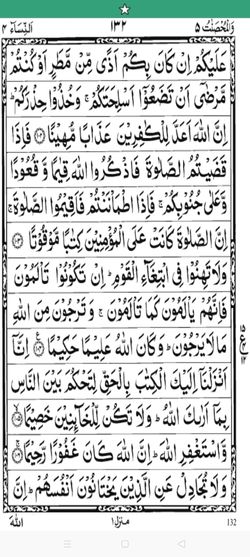 النساء ٤ ١٣٢ والمحصنت ٥
عَلَيْكُمْ اِنْ كَانَ بِكُمْ اَذًى مِّنْ مَّطَرٍ اَوْ كُنْتُمْ
مَّرْضٰٓى اَنْ تَضَعُوْٓا اَسْلِحَتَكُمْ ۚ وَخُذُوْا حِذْرَكُمْ ؕ
اِنَّ اللّٰهَ اَعَدَّ لِلْكٰفِرِيْنَ عَذَابًا مُّهِيْنًا ﴿۱۰۲﴾ فَاِذَا
قَضَيْتُمُ الصَّلٰوةَ فَاذْكُرُوا اللّٰهَ قِيٰمًا وَّقُعُوْدًا
وَّعَلٰى جُنُوْبِكُمْ ۚ فَاِذَا اطْمَاْنَنْتُمْ فَاَقِيْمُوا الصَّلٰوةَ ۚ
اِنَّ الصَّلٰوةَ كَانَتْ عَلَى الْمُؤْمِنِيْنَ كِتٰبًا مَّوْقُوْتًا ﴿۱۰۳﴾
وَلَا تَهِنُوْا فِى ابْتِغَآءِ الْقَوْمِ ؕ اِنْ تَكُوْنُوْا تَاْلَمُوْنَ
فَاِنَّهُمْ يَاْلَمُوْنَ كَمَا تَاْلَمُوْنَ ۚ وَتَرْجُوْنَ مِنَ اللّٰهِ
مَا لَا يَرْجُوْنَ ؕ وَكَانَ اللّٰهُ عَلِيْمًا حَكِيْمًا ﴿۱۰۴﴾ اِنَّآ
اَنْزَلْنَآ اِلَيْكَ الْكِتٰبَ بِالْحَقِّ لِتَحْكُمَ بَيْنَ النَّاسِ
بِمَآ اَرٰىكَ اللّٰهُ ؕ وَلَا تَكُنْ لِّلْخَآئِنِيْنَ خَصِيْمًا ﴿۱۰۵﴾
وَّاسْتَغْفِرِ اللّٰهَ ؕ اِنَّ اللّٰهَ كَانَ غَفُوْرًا رَّحِيْمًا ﴿۱۰۶﴾
وَلَا تُجَادِلْ عَنِ الَّذِيْنَ يَخْتَانُوْنَ اَنْفُسَهُمْ ؕ اِنَّ
اللهَ منزل ١ 132